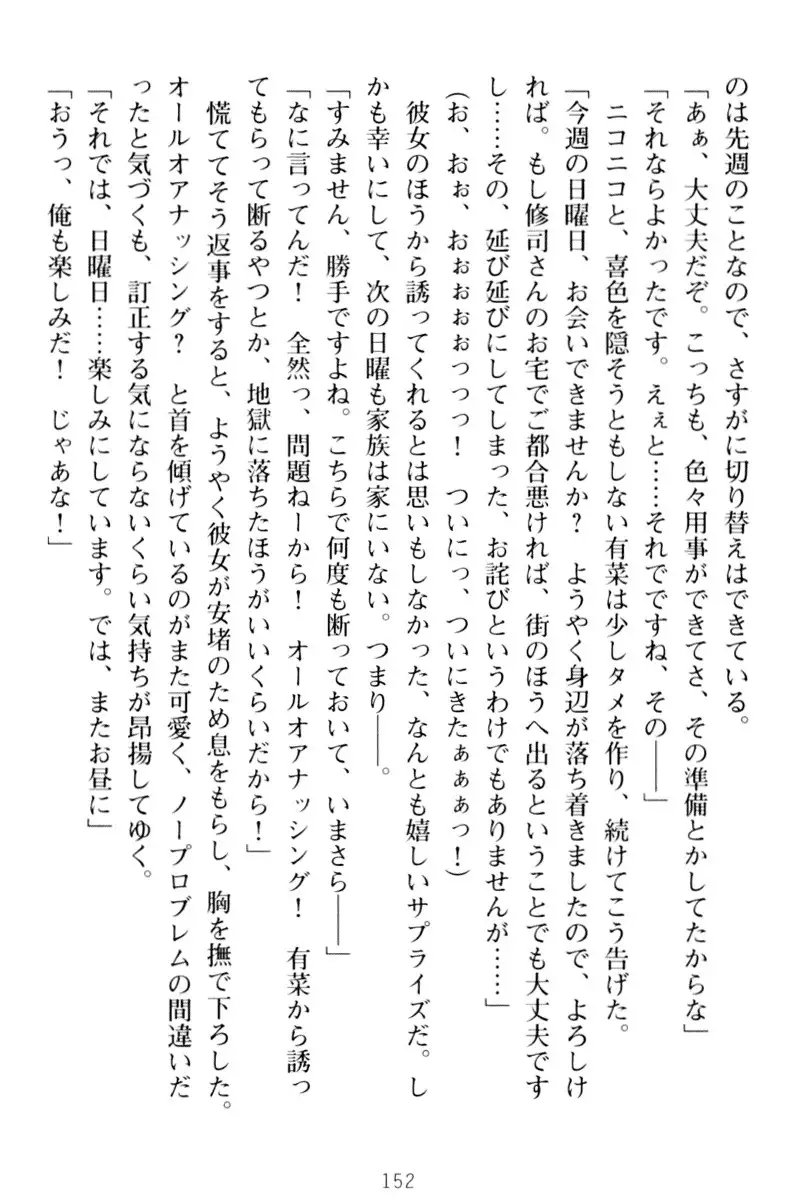 のは先週のことなので、さすがに切り替えはできている。
「あぁ、大丈夫だぞ。こっちも、色々用事ができてさ、その準備とかしてたからな」
「それならよかったです。えぇと……それでですね、その――」
ニコニコと、喜色を隠そうともしない有菜は少しタメを作り、続けてこう告げた。
「今週の日曜日、お会いできませんか？　ようやく身辺が落ち着きましたので、よろしけ
れば。もし修司さんのお宅でご都合悪ければ、街のほうへ出るということでも大丈夫です
し……その、延び延びにしてしまった、お詫びというわけでもありませんが……」
（お、おぉ、おぉぉぉぉっっっ！　ついにっ、ついにきたぁぁぁっ！）
彼女のほうから誘ってくれるとは思いもしなかった、なんとも嬉しいサプライズだ。し
かも幸いにして、次の日曜も家族は家にいない。つまり――。
「すみません、勝手ですよね。こちらで何度も断っておいて、いまさら――」
「なに言ってんだ！　全然っ、問題ねーから！　オールオアナッシング！　有菜から誘っ
てもらって断るやつとか、地獄に落ちたほうがいいくらいだから！」
慌ててそう返事をすると、ようやく彼女が安堵のため息をもらし、胸を撫で下ろした。
オールオアナッシング？　と首を傾げているのがまた可愛く、ノープロブレムの間違いだ
ったと気づくも、訂正する気にならないくらい気持ちが昂揚してゆく。
「それでは、日曜日……楽しみにしています。では、またお昼に」
「おうっ、俺も楽しみだ！　じゃあな！」
152